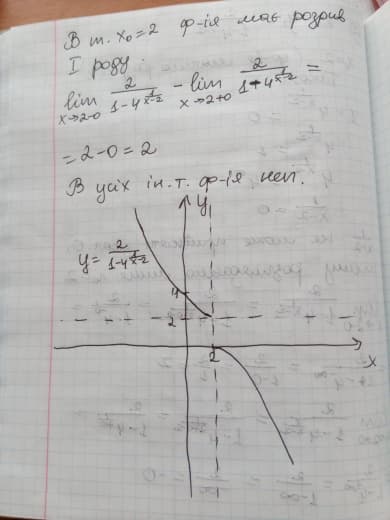 В т. x₀=2 ф-ія має розрив
I роду:
lim x→2-0 2/(1-4^(1/(x-2))) - lim x→2+0 2/(1-4^(1/(x-2))) =
= 2-0 = 2
В усіх ін. т. ф-ія неп.
y
y = 2/(1-4^(1/(x-2)))
4
2
2
x